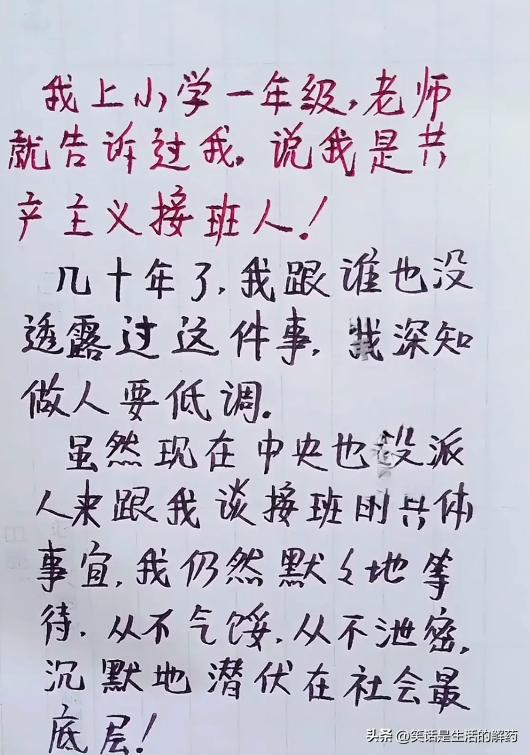 我上小学一年级,老师
就告诉过我。说我是共
产主义接班人!
几十年了,我跟谁也没
透露过这件事,我深知
做人要低调。
虽然现在中央也没派
人来跟我谈接班的具体
事宜,我仍然默々地等
待.从不气馁.从不泄密,
沉默地潜伏在社会最
底层!
头条@笑话是生活的解药